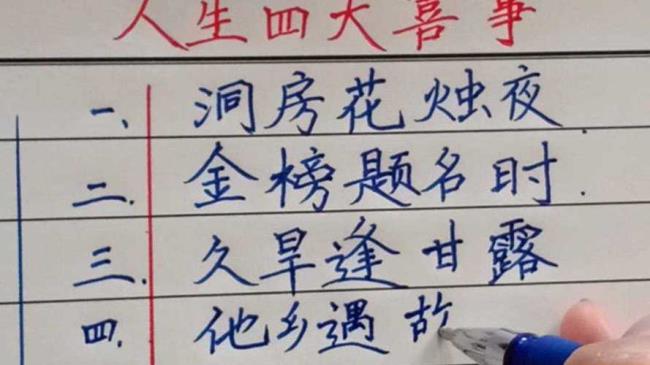 人生四大喜事
一、洞房花烛夜
二.金榜题名时.
三.久旱逢甘露
四.他乡遇故